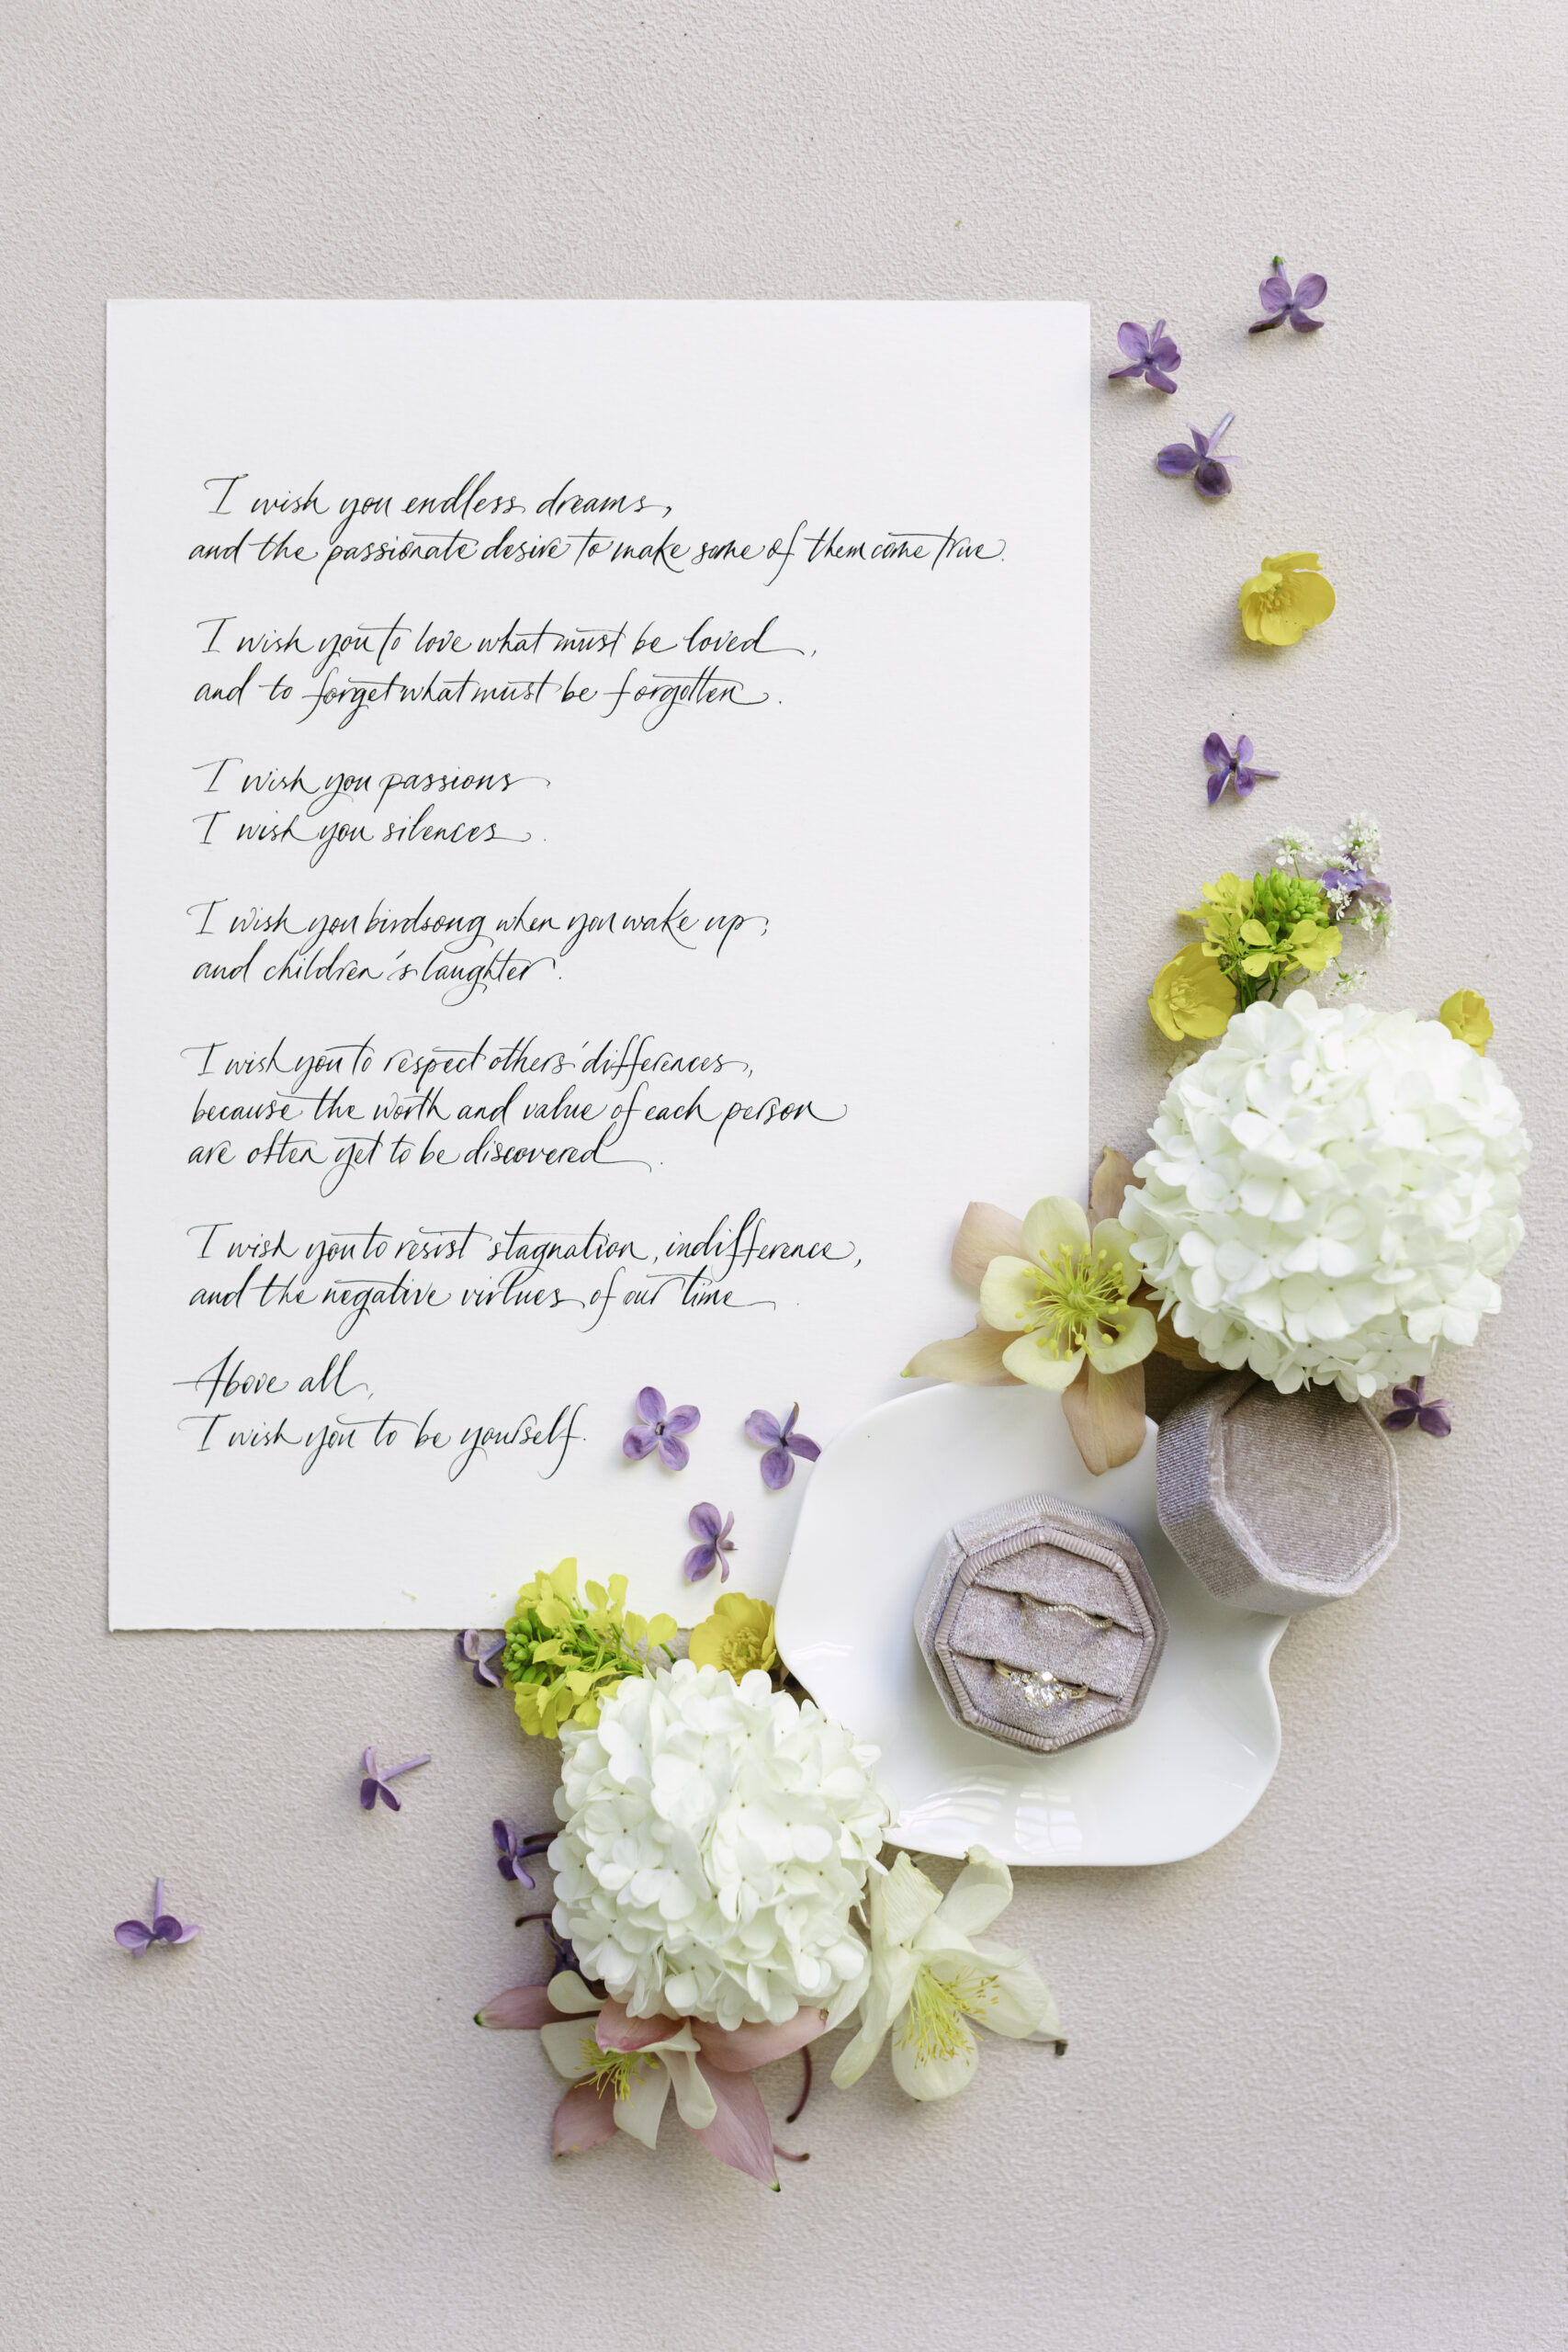 I wish you endless dreams,
and the passionate desire to make some of them come true.
I wish you to love what must be loved,
and to forget what must be forgotten.
I wish you passions
I wish you silences.
I wish you birdsong when you wake up;
and children's laughter.
I wish you to respect others' differences,
because the worth and value of each person
are often yet to be discovered.
I wish you to resist stagnation, indifference,
and the negative virtues of our time.
Above all,
I wish you to be yourself.